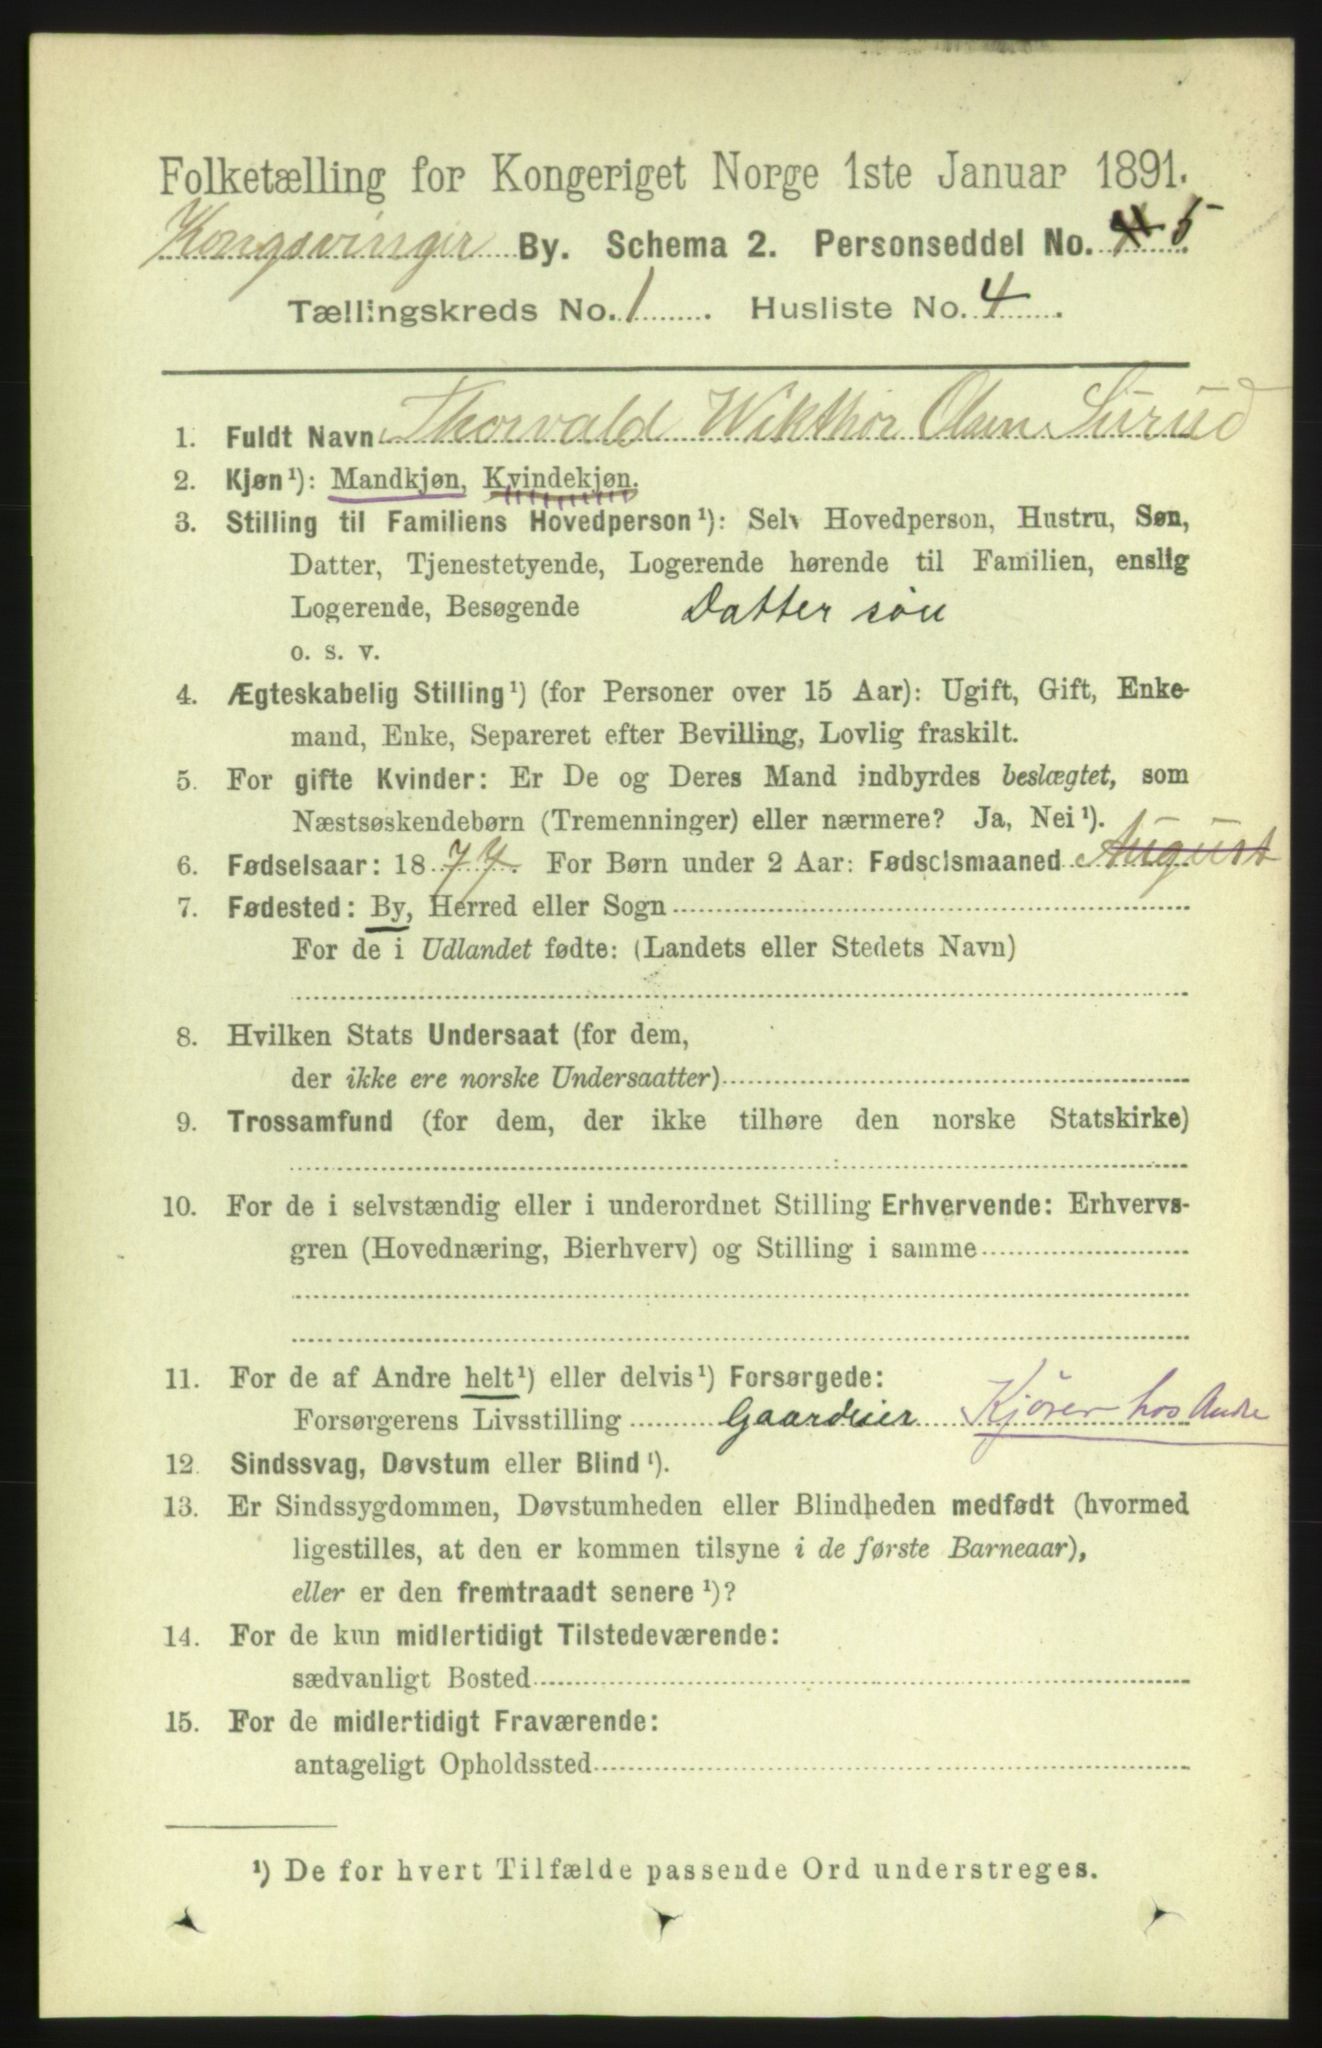 Folketælling for Kongeriget Norge 1ste Januar 1891.
Kongsvinger By. Schema 2. Personseddel No. 4 5
Tællingskreds No. 1. Husliste No. 4.
1. Fuldt Navn Thorvald Wikthor Olsen Surud
2. Kjøn¹): Mandkjøn, Kvindekjøn.
3. Stilling til Familiens Hovedperson¹): Selv Hovedperson, Hustru, Søn,
Datter, Tjenestetyende, Logerende hørende til Familien, enslig
Logerende, Besøgende Datter søn
o. s. v.
4. Ægteskabelig Stilling¹) (for Personer over 15 Aar): Ugift, Gift, Enke-
mand, Enke, Separeret efter Bevilling, Lovlig fraskilt.
5. For gifte Kvinder: Er De og Deres Mand indbyrdes beslægtet, som
Næstsøskendebørn (Tremenninger) eller nærmere? Ja, Nei¹).
6. Fødselsaar: 1877. For Børn under 2 Aar: Fødselsmaaned August
7. Fødested: By, Herred eller Sogn
For de i Udlandet fødte: (Landets eller Stedets Navn)
8. Hvilken Stats Undersaat (for dem,
der ikke ere norske Undersaatter)
9. Trossamfund (for dem, der ikke tilhøre den norske Statskirke)
10. For de i selvstændig eller i underordnet Stilling Erhvervende: Erhvervs-
gren (Hovednæring, Bierhverv) og Stilling i samme
11. For de af Andre helt¹) eller delvis¹) Forsørgede:
Forsørgerens Livsstilling Gaardeier Kjører hos Andre
12. Sindssvag, Døvstum eller Blind¹).
13. Er Sindssygdommen, Døvstumheden eller Blindheden medfødt (hvormed
ligestilles, at den er kommen tilsyne i de første Barneaar),
eller er den fremtraadt senere¹)?
14. For de kun midlertidigt Tilstedeværende:
sædvanligt Bosted
15. For de midlertidigt Fraværende:
antageligt Opholdssted
¹) De for hvert Tilfælde passende Ord understreges.